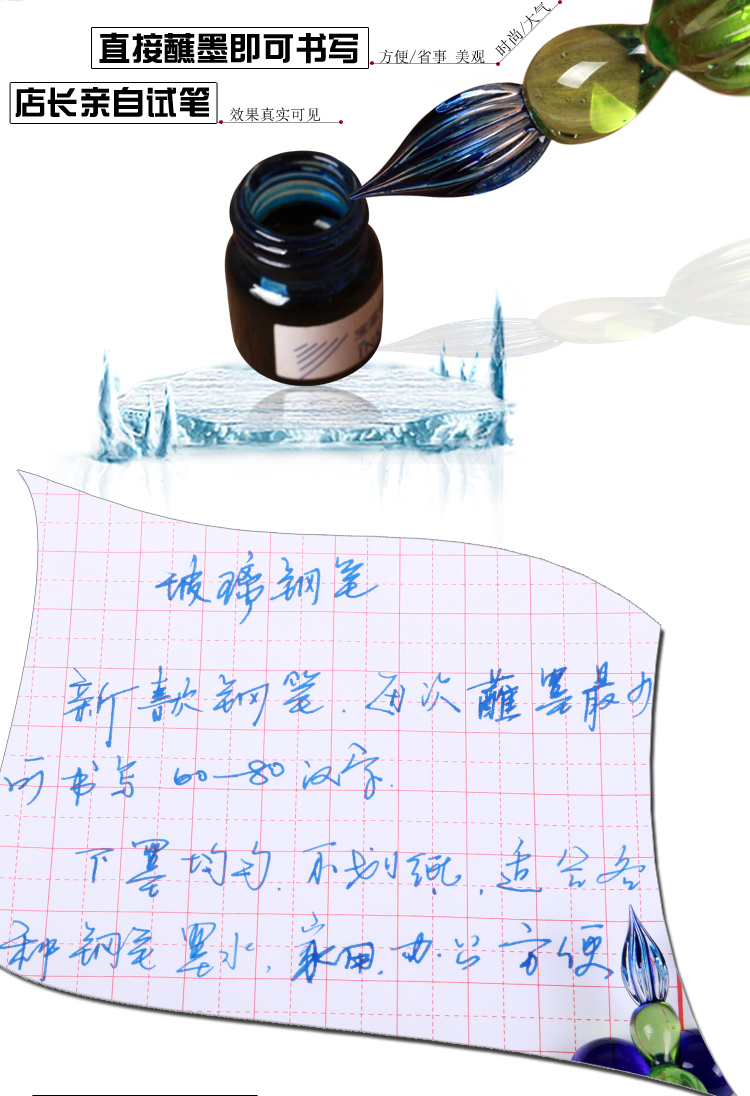 直接蘸墨即可书写
方便/省事 美观
时尚/大气
店长亲自试笔
效果真实可见
玻璃钢笔
新款钢笔.每次蘸墨最少
可书写60—80汉字.
下墨均匀.不划纸.适合各
种钢笔墨水.家用.办公方便